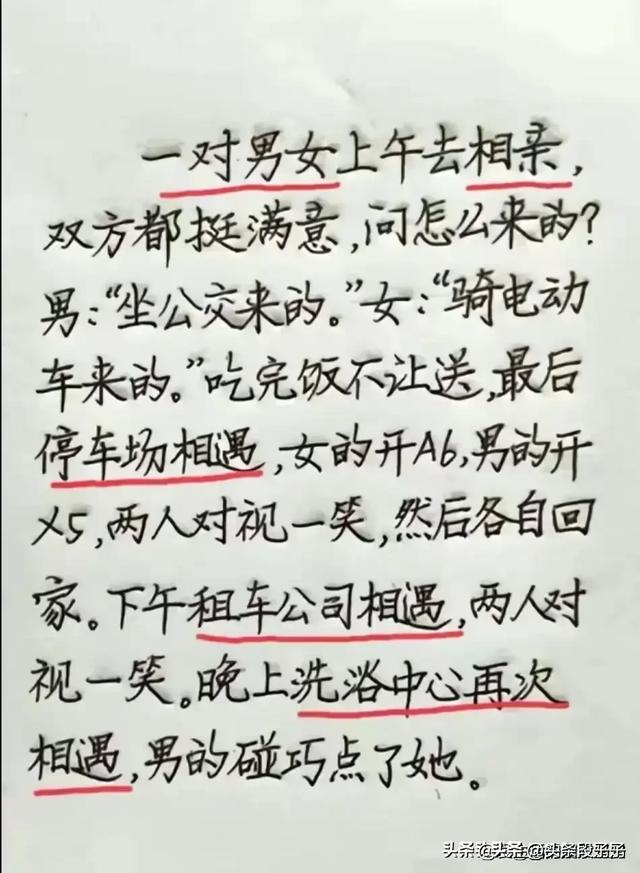 一对男女上午去相亲,
双方都挺满意,问怎么来的?
男:“坐公交来的。”女:“骑电动
车来的。”吃完饭不让送,最后
停车场相遇,女的开A6,男的开
X5,两人对视一笑,然后各自回
家。下午租车公司相遇,两人对
视一笑。晚上洗浴中心再次
相遇,男的碰巧点了她。